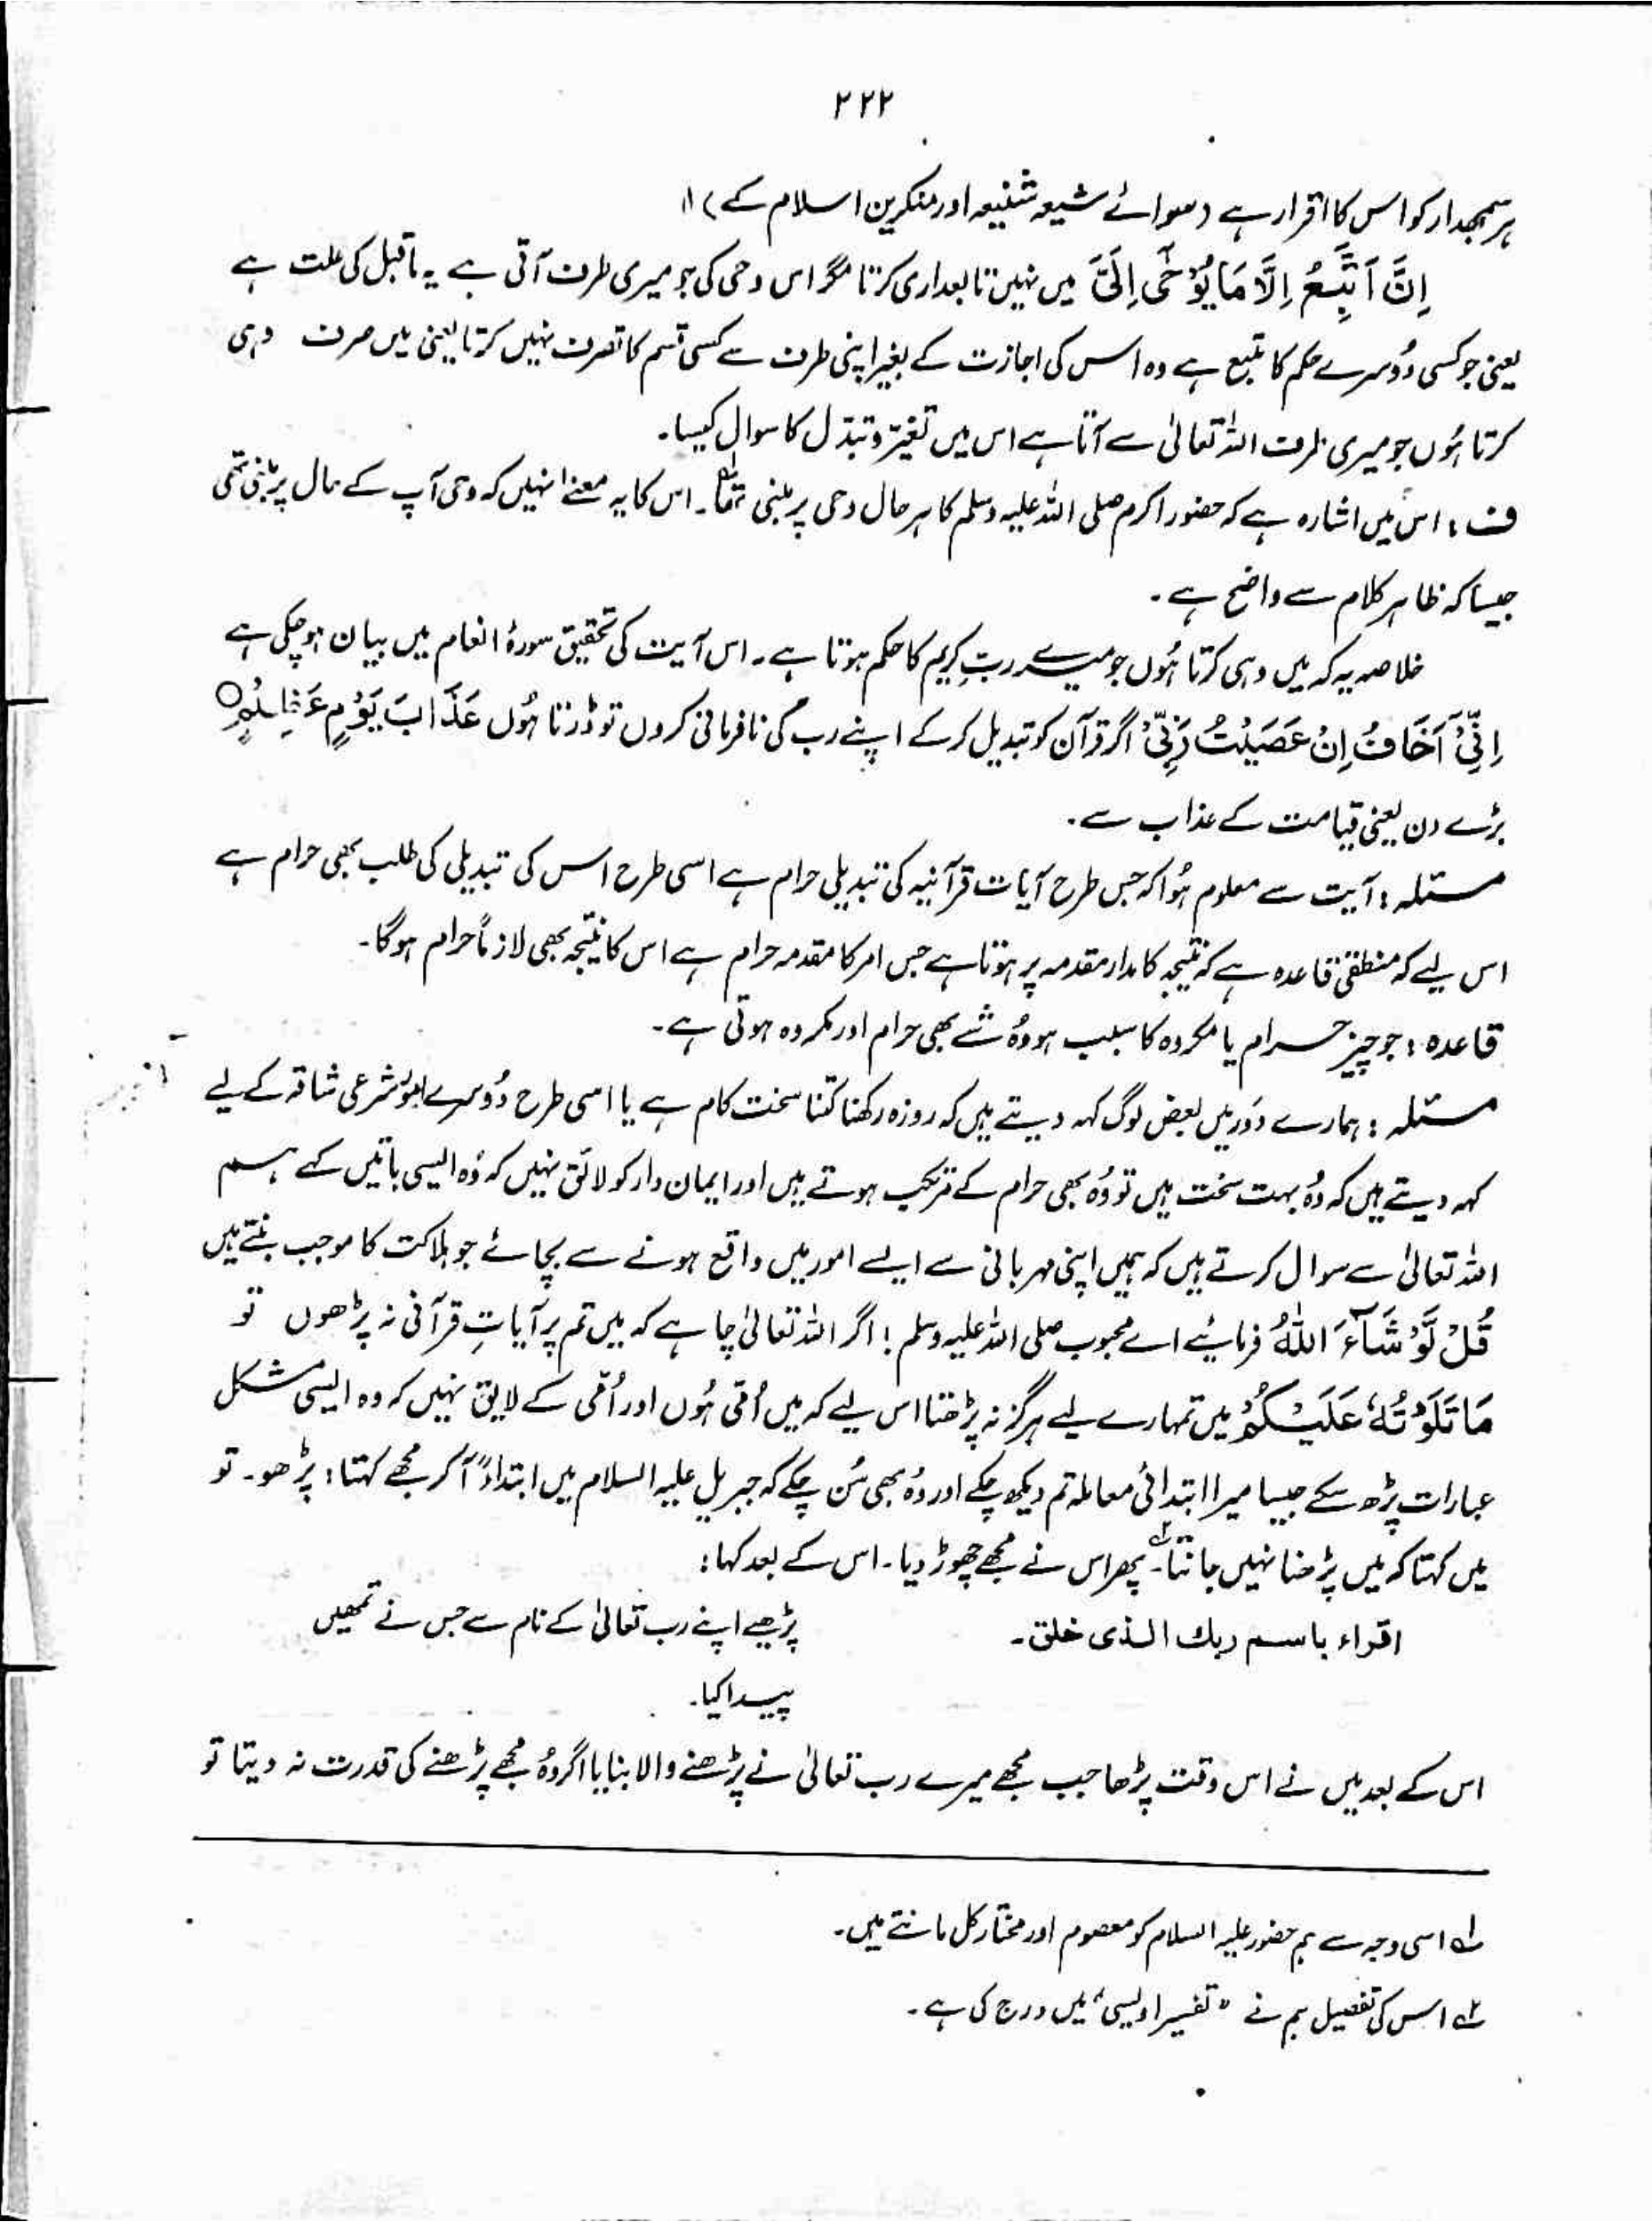 ۲۲۲
ہر سمجھدار کو اس کا اقرار ہے (سوائے شیعہ شنیعہ اور منکرین اسلام کے) ۱۱
اِنْ اَتَّبِعُ اِلَّا مَا یُوْحٰۤی اِلَیَّ میں نہیں تابعداری کرتا مگر اس وحی کی جو میری طرف آتی ہے یہ ماقبل کی علت ہے
یعنی جو کسی دُوسرے حکم کا متبع ہے وہ اس کی اجازت کے بغیر اپنی طرف سے کسی قسم کا تصرف نہیں کرتا یعنی میں صرف وہی
کرتا ہُوں جو میری طرف اللہ تعالیٰ سے آتا ہے اس میں تغیّر و تبدّل کا سوال کیسا۔
ف : اس میں اشارہ ہے کہ حضور اکرم صلی اللہ علیہ وسلم کا ہر حال وحی پر مبنی تھا۱؎۔ اس کا یہ معنےٰ نہیں کہ وحی آپ کے حال پر مبنی تھی
جیسا کہ ظاہر کلام سے واضح ہے۔
خلاصہ یہ کہ میں وہی کرتا ہُوں جو میرے ربِّ کریم کا حکم ہوتا ہے۔ اس آیت کی تحقیق سورۂ انعام میں بیان ہو چکی ہے
اِنِّیْۤ اَخَافُ اِنْ عَصَیْتُ رَبِّیْ اگر قرآن کو تبدیل کر کے اپنے رب کی نافرمانی کروں تو ڈرتا ہُوں عَذَابَ یَوْمٍ عَظِیْمٍ ○
بڑے دن یعنی قیامت کے عذاب سے۔
مسئلہ : آیت سے معلوم ہُوا کہ جس طرح آیات قرآنیہ کی تبدیلی حرام ہے اسی طرح اس کی تبدیلی کی طلب بھی حرام ہے
اس لیے کہ منطقی قاعدہ ہے کہ نتیجہ کا مدار مقدمہ پر ہوتا ہے جس امر کا مقدمہ حرام ہے اس کا نتیجہ بھی لازماً حرام ہوگا۔
قاعدہ : جو چیز حرام یا مکروہ کا سبب ہو وہُ شے بھی حرام اور مکروہ ہوتی ہے۔
مسئلہ : ہمارے دَور میں بعض لوگ کہہ دیتے ہیں کہ روزہ رکھنا کتنا سخت کام ہے یا اسی طرح دُوسرے امور شرعی شاقہ کے لیے
کہہ دیتے ہیں کہ وہُ بہت سخت ہیں تو وُہ بھی حرام کے مرتکب ہوتے ہیں اور ایمان دار کو لائق نہیں کہ وُہ ایسی باتیں کہے ہم
اللہ تعالیٰ سے سوال کرتے ہیں کہ ہمیں اپنی مہربانی سے ایسے امور میں واقع ہونے سے بچائے جو ہلاکت کا موجب بنتے ہیں
قُلْ لَّوْ شَآءَ اللّٰهُ فرمائیے اے محبوب صلی اللہ علیہ وسلم ! اگر اللہ تعالیٰ چاہے کہ میں تم پر آیاتِ قرآنی نہ پڑھوں تو
مَا تَلَوْتُهٗ عَلَیْكُمْ میں تمہارے لیے ہرگز نہ پڑھتا اس لیے کہ میں اُمّی ہُوں اور اُمّی کے لایق نہیں کہ وہ ایسی مشکل
عبارات پڑھ سکے جیسا میرا ابتدائی معاملہ تم دیکھ چکے اور وہُ بھی سُن چکے کہ جبریل علیہ السلام میں ابتداءً آ کر مجھے کہتا : پڑھو۔ تو
میں کہتا کہ میں پڑھنا نہیں جانتا۲؎۔ پھر اس نے مجھے چھوڑ دیا۔ اس کے بعد کہا :
اقراء باسم ربك الذی خلق۔ پڑھیے اپنے رب تعالیٰ کے نام سے جس نے تمھیں
پیدا کیا۔
اس کے بعد میں نے اس وقت پڑھا جب مجھے میرے رب تعالیٰ نے پڑھنے والا بنایا اگر وہُ مجھے پڑھنے کی قدرت نہ دیتا تو
۱؎ اسی وجہ سے ہم حضور علیہ السلام کو معصوم اور مختار کل مانتے ہیں۔
۲؎ اس کی تفصیل ہم نے "تفسیر اویسی" میں درج کی ہے۔